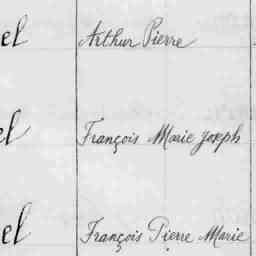 el Arthur Pierre
el François Marie Joseph
el François Pierre Marie